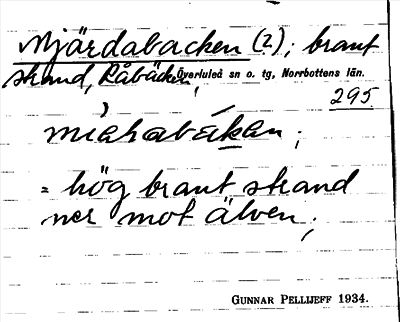 Mjärdabacken (2); brant
strand, Råbäcken, Överluleå sn o. tg, Norrbottens län.
295
= hög brant strand
ner mot älven;
GUNNAR PELLIJEFF 1934.